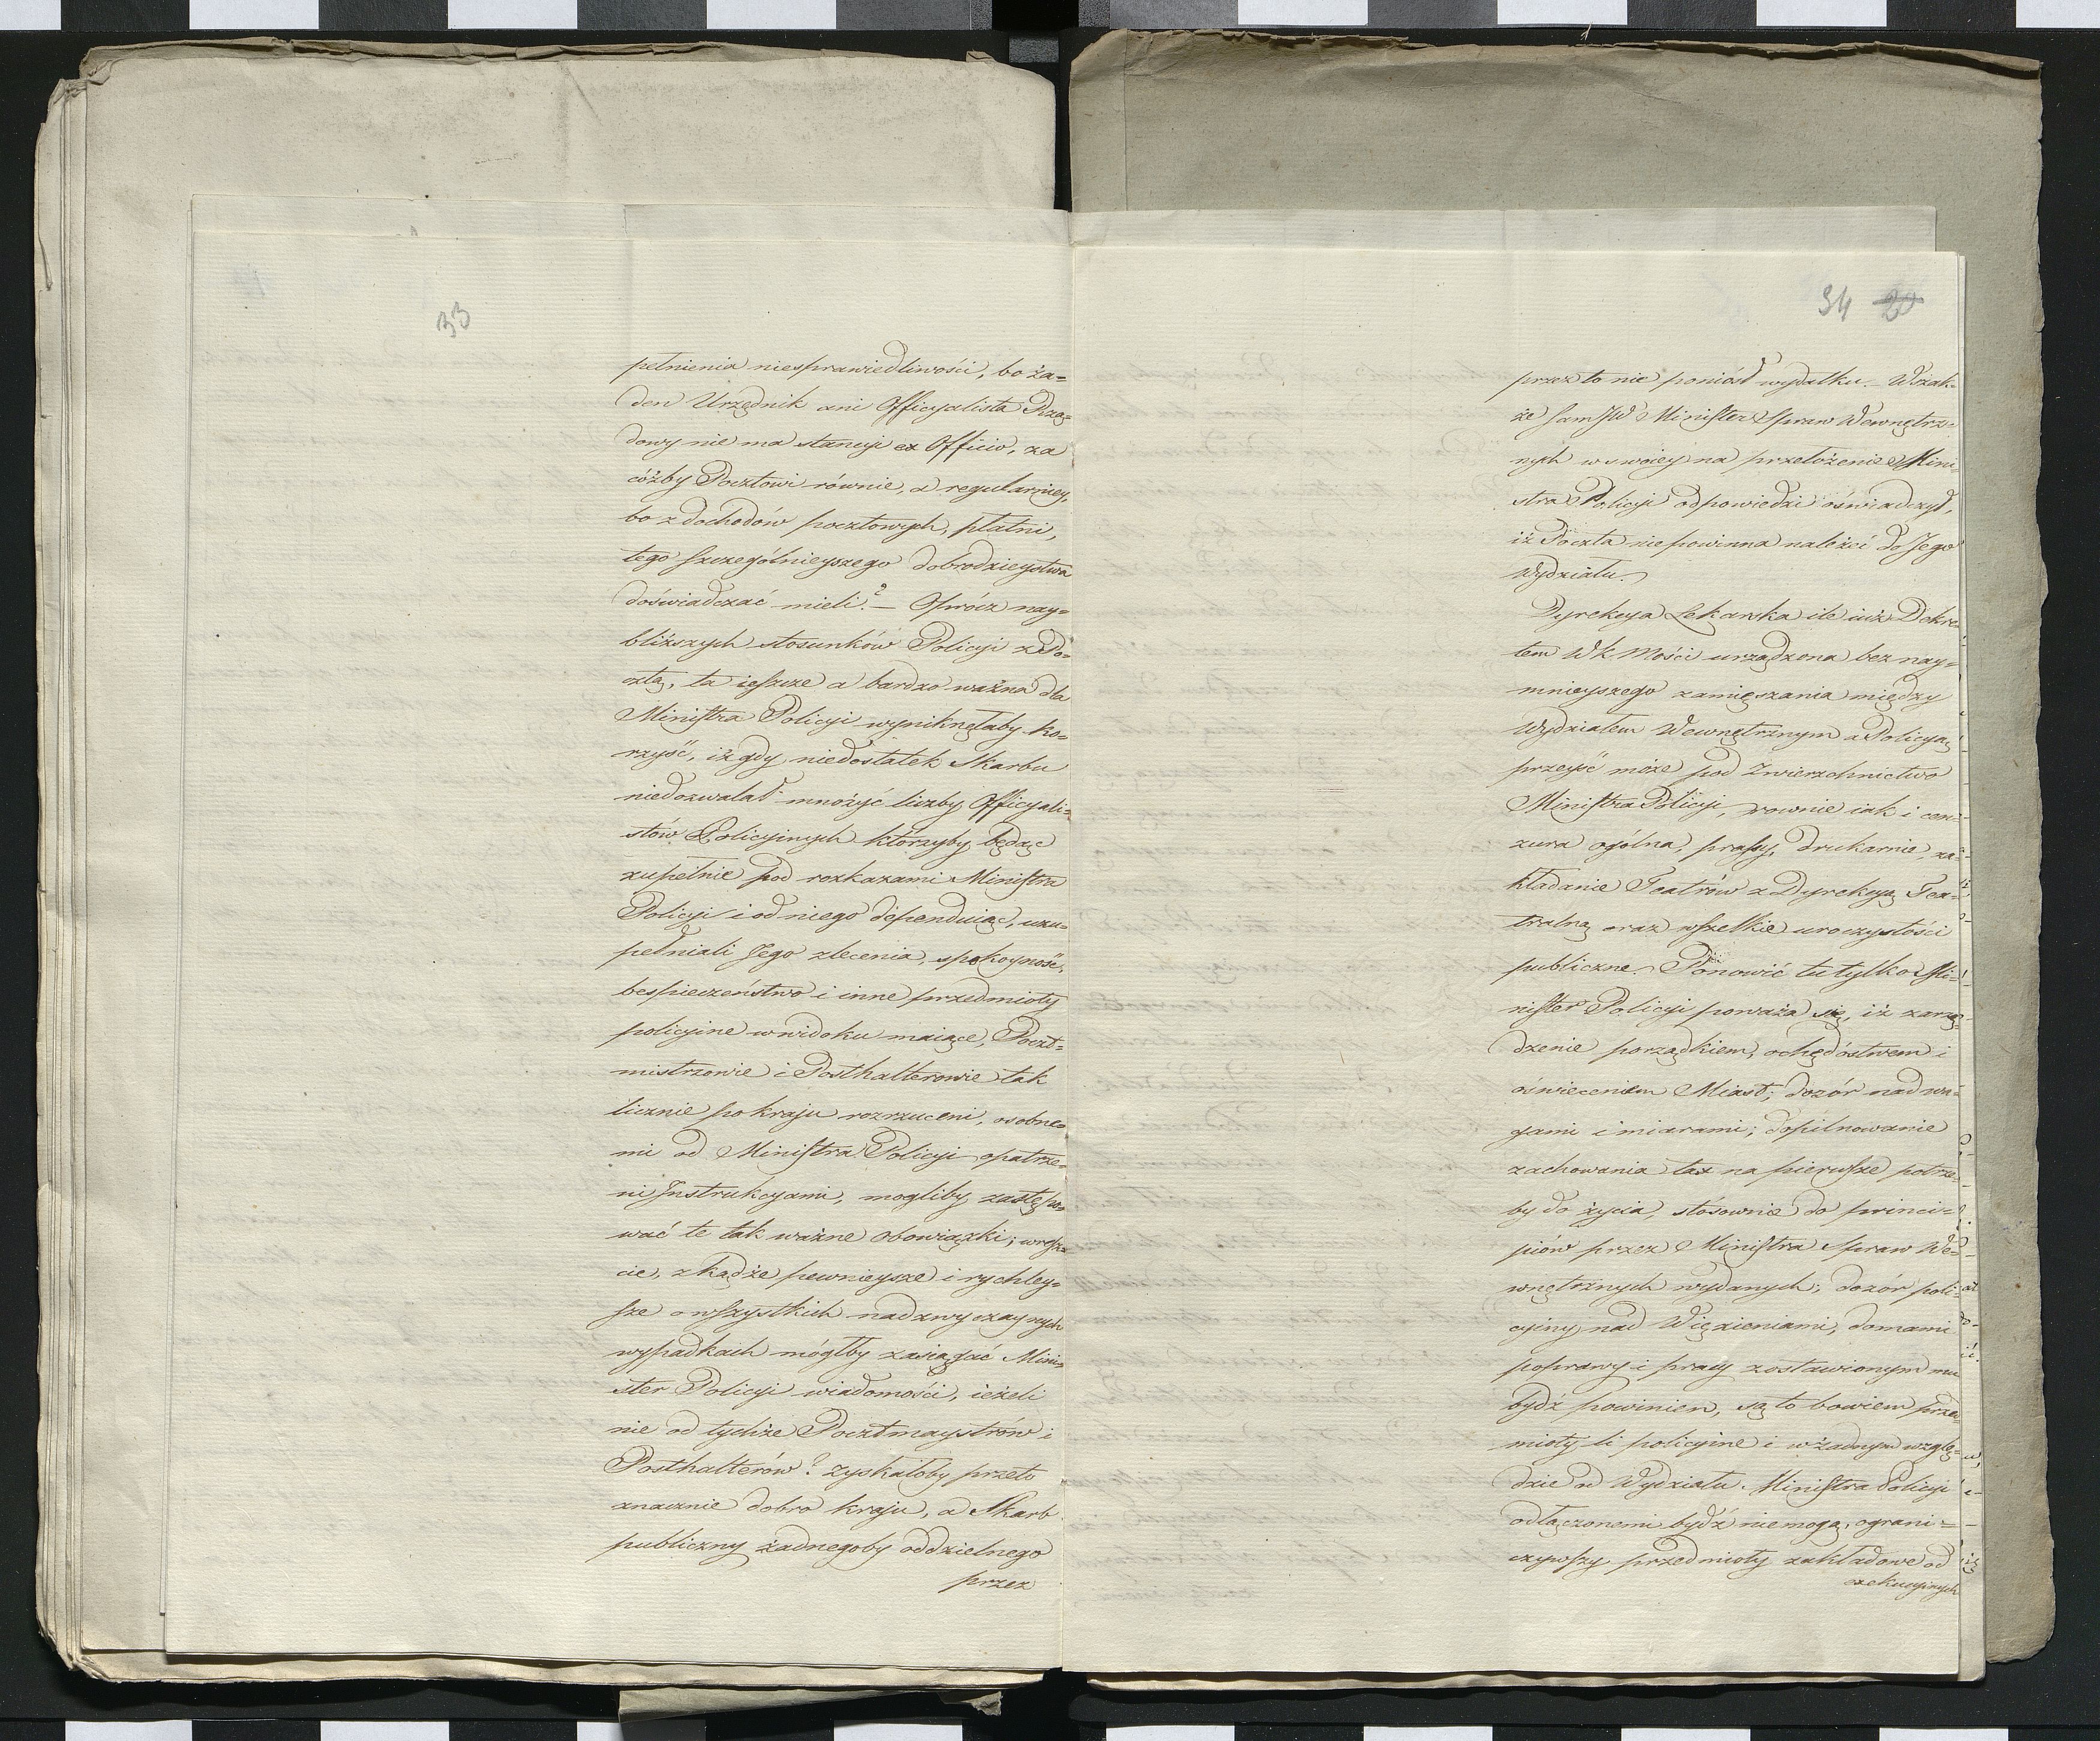 33
pełnienia niesprawiedliwości, bo ża=
den Urzędnik ani Officyalista Rzą=
dowy nie ma stancyi ex Officio, za
cóżby Pocztowi równie, a regularniey,
bo z dochodów pocztowych, płatni,
tego szczególnieyszego dobrodzieystwa
doświadczać mieli? — Oprócz nay=
bliższych stosunków Policyi z Po=
cztą, ta ieszcze a bardzo ważna dla
Ministra Policyi wyniknęłaby ko=
rzyść, iż gdy niedostatek Skarbu
niedozwalał mnożyć liczby Officyali=
stów Policyinych którzyby będąc
zupełnie pod rozkazami Ministra
Policyi i od niego dependuiąc, uzu=
pełniali Jego zlecenia, spokoyność,
bespieczeństwo i inne przedmioty
policyine w widoku maiące, Poczt=
mistrzowie i Posthalterowie tak
licznie po kraju rozrzuceni, osobne=
mi od Ministra Policyi opatrze=
ni Instrukcyami, mogliby zastępo=
wać te tak ważne obowiązki; wresz=
cie, zkądże pewnieysze i rychley=
sze o wszystkich nadzwyczaynych
wypadkach mógłby zasiągać Mini=
ster Policyi wiadomości, ieżeli
nie od tychże Pocztmaystrów i
Posthalterów? zyskałoby przeto
znacznie dobro kraju, a Skarb
publiczny żadnegoby oddzielnego
przez
34 20
przez to nie poniósł wydatku. Wszak=
że sam JW Minister Spraw Wewnętrz=
nych w swoiey na przełożenie Mini=
stra Policyi odpowiedzi oświadczył,
iż Poczta nie powinna należeć do Jego
Wydziału.
Dyrekcya Lekarska ile iuż Dekre=
tem WK Mości urządzona bez nay=
mnieyszego zamięszania między
Wydziałem Wewnętrznym a Policyą
przeyść może pod zwierzchnictwo
Ministra Policyi, równie iak i cen=
zura ogólna, prassy, drukarnie, za=
kładanie Teatrów z Dyrekcyą Tea=
tralną oraz wszelkie uroczystości
publiczne. Ponowić tu tylko Mi=
nister Policyi poważa się, iż zarzą=
dzenie porządkiem, ochędóstwem i
oświeceniem Miast; dozór nad wa=
gami i miarami; dopilnowanie
zachowania tax na pierwsze potrze=
by do życia, stósownie do princi=
piów przez Ministra Spraw We=
wnętrznych wydanych; dozór poli=
cyiny nad Więzieniami, domami
poprawy i pracy zostawionym mu
bydź powinien, są to bowiem przed=
mioty li policyine i w żadnym wzglę=
dzie od Wydziału Ministra Policyi
odłączonemi bydź niemogą, ograni=
czywszy przedmioty zakładowe od
exekucyinych